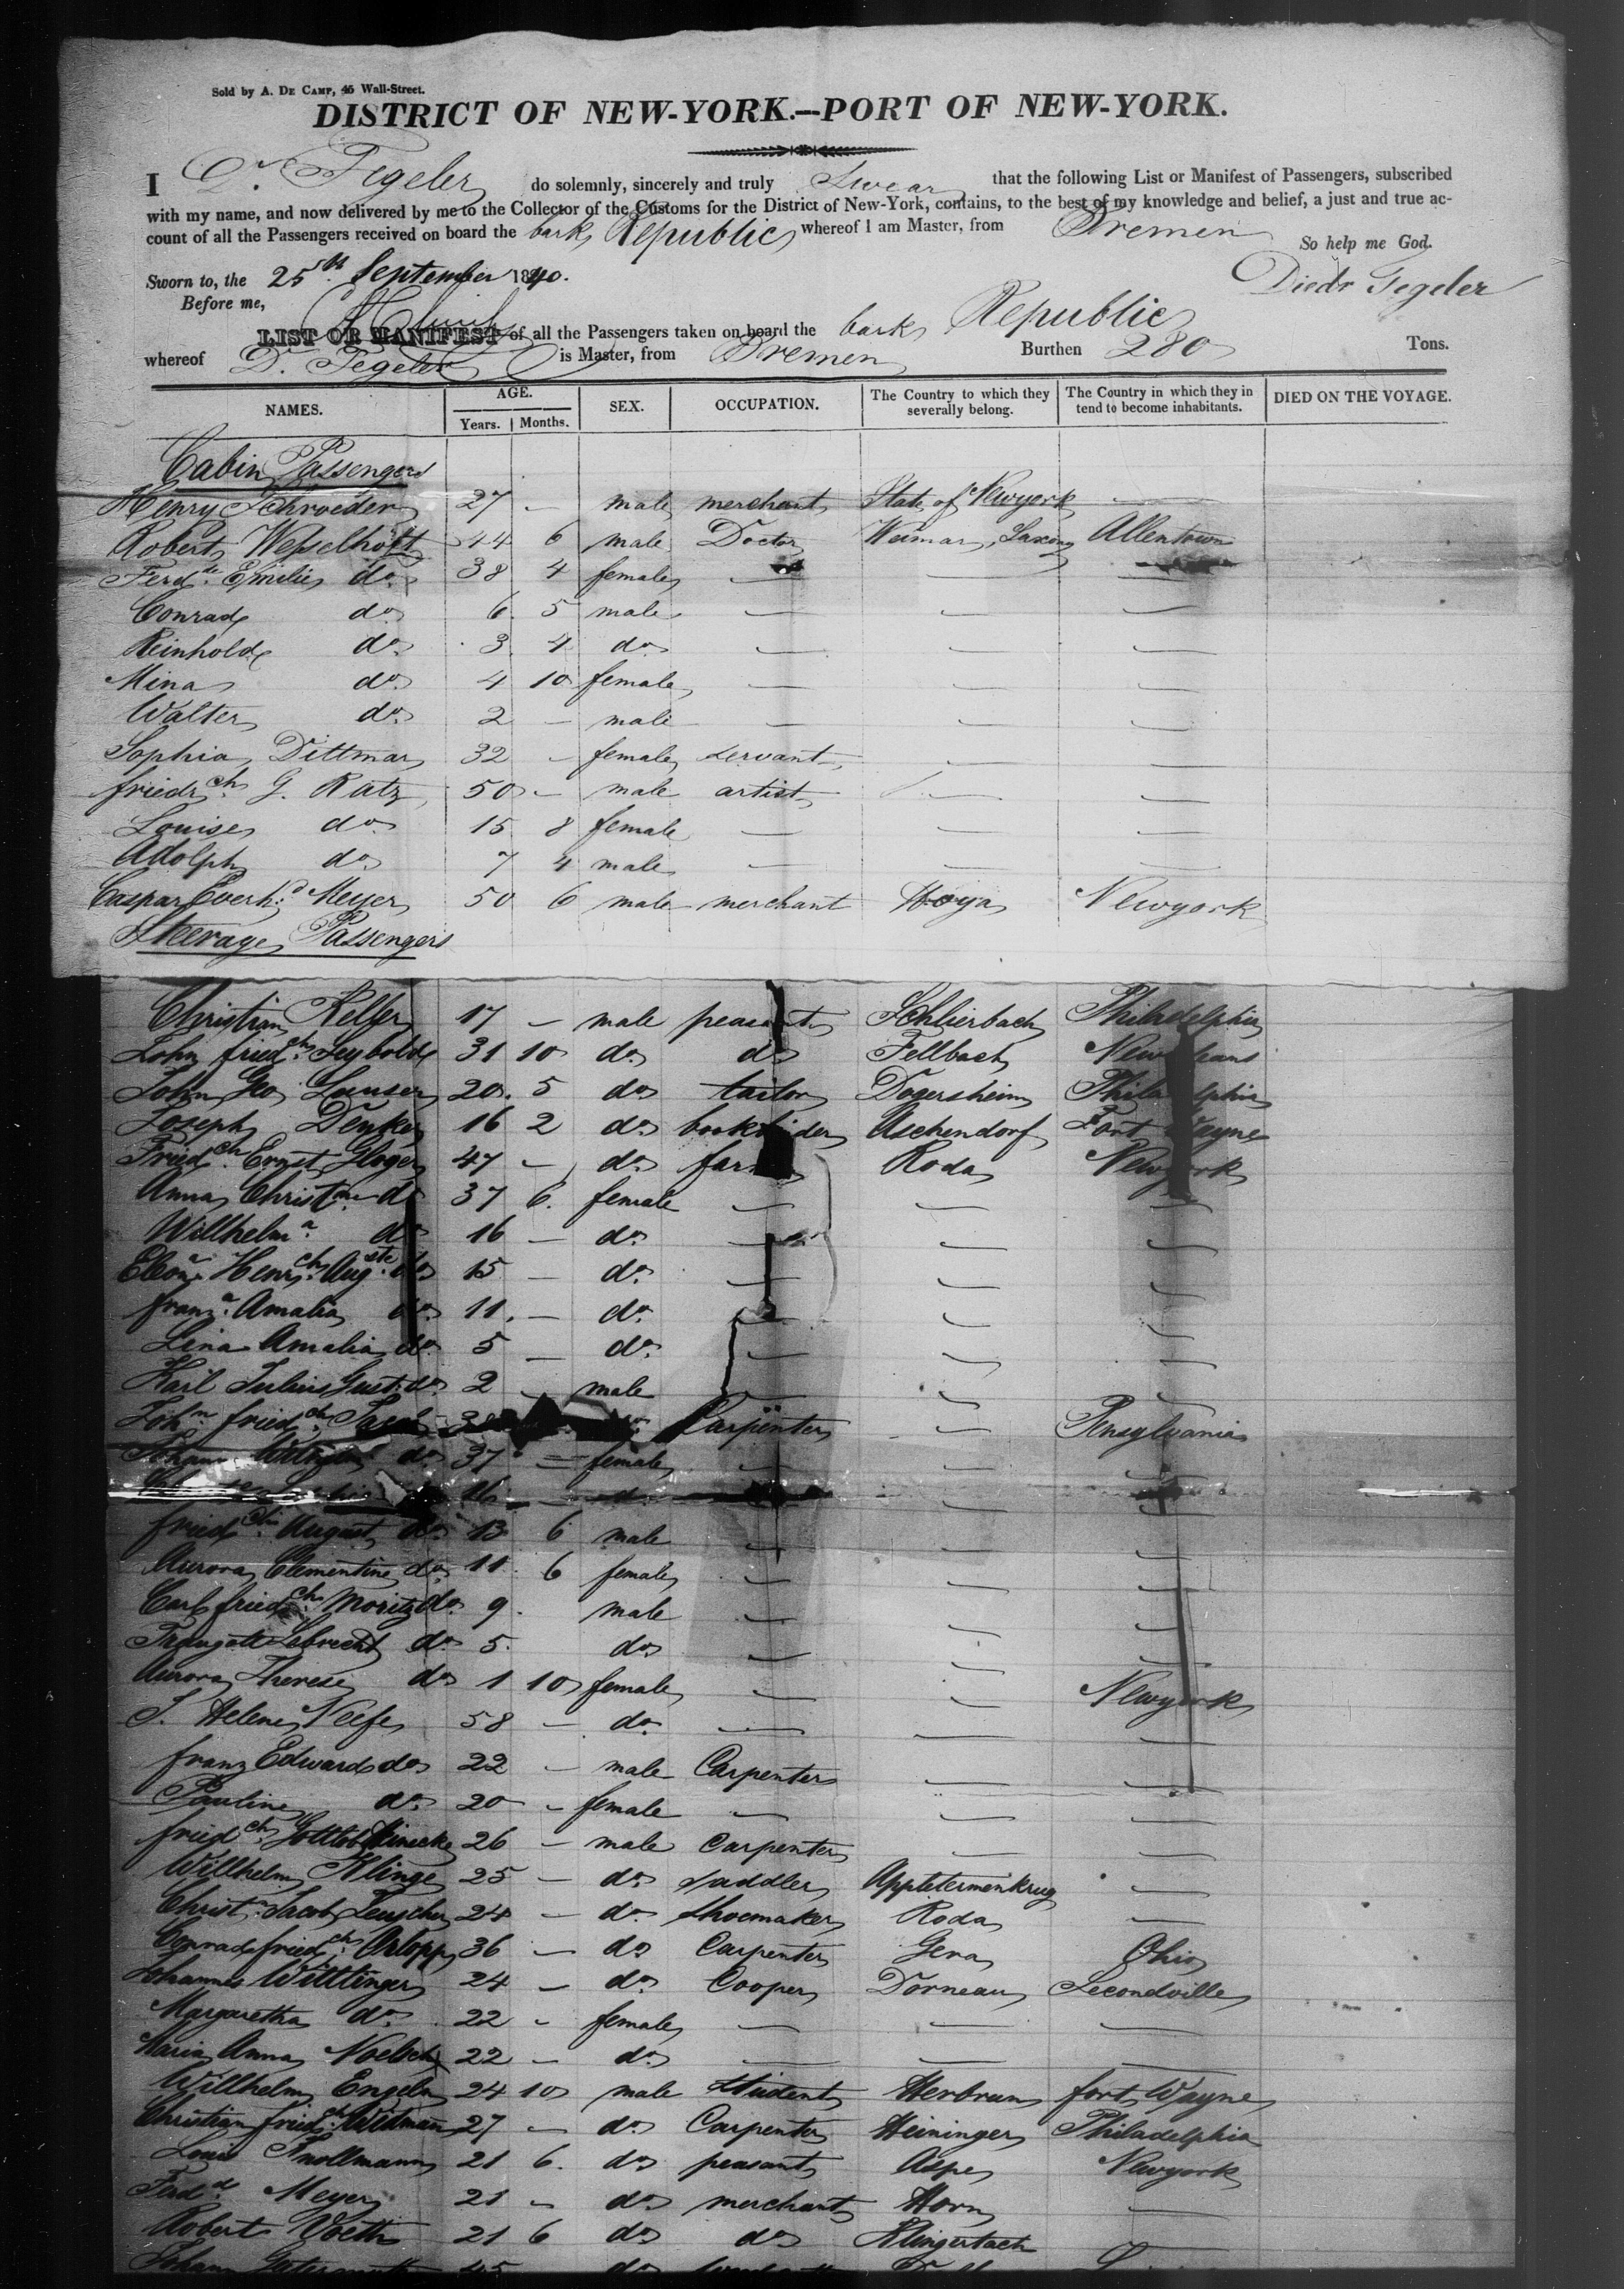 Sold by A. DE CAMP, 45 Wall-Street.
DISTRICT OF NEW-YORK.—PORT OF NEW-YORK.
I D. Tegeler do solemnly, sincerely and truly Swear that the following List or Manifest of Passengers, subscribed
with my name, and now delivered by me to the Collector of the Customs for the District of New-York, contains, to the best of my knowledge and belief, a just and true ac-
count of all the Passengers received on board the bark Republic whereof I am Master, from Bremen
So help me God.
Sworn to, the 25th September 1840.
Diedr Tegeler
Before me,
LIST OR MANIFEST of all the Passengers taken on board the bark Republic
whereof D. Tegeler is Master, from Bremen Burthen 280 Tons.
NAMES. AGE. Years. Months. SEX. OCCUPATION. The Country to which they severally belong. The Country in which they intend to become inhabitants. DIED ON THE VOYAGE.
Cabin Passengers
Henry Schroeder 27 — male merchant State of Newyork —
Robert Wesselhöft 44 6 male Doctor Weimar, Saxony Allentown
Ferd.de Emilie do. 38 4 female — — —
Conrad do. 6 5 male — — —
Reinhold do. 3 4 do. — — —
Mina do. 4 10 female — — —
Walter do. 2 — male — — —
Sophia Dittmar 32 — female servant — —
Friedr.ch G. Ratz 50 — male artist — —
Louise do. 15 8 female — — —
Adolph do. 7 4 male — — —
Caspar Everh.d Meyer 50 6 male merchant Hoya Newyork
Steerage Passengers
Christian Kelfer 17 — male peasant Schlierbach Philadelphia
John Fried.ch Seybold 31 10 do. do Fellbach New
John Geo 20 5 do tailor Dogersheim Philadelphia
Joseph Denker 16 2 do. bookbinder Aschendorf Fort Wayne
Fried.ch Ernst Gloger 47 — do. Roda Newyork
Anna Christ.ne do 37 6 female — — —
Willhelm.a do 16 — do. — — —
Henr.ch Aug.ste do 15 — do. — — —
Franz.a Amalia do. 11 — do. — — —
Lina Amalia do. 5 — do. — — —
Karl Julius Gust. do. 2 — male — — —
Joh.n Fried.ch Carpenter — Pensylvania
do. 37 — female — — —
16 — — —
Fried.ch August do. 13 6 male — — —
Aurora Clementine do 11 6 female — — —
Carl Fried.ch Moritz do. 9 male — — —
Traugott Lebrecht do. 5 do — — —
Aurora Therese do 1 10 female — — Newyork
S. Helene Neefe 58 — do. — — —
Franz Edward do 22 — male Carpenter — —
Pauline do. 20 — female — — —
Fried.ch Gottlob 26 — male Carpenter — —
Willhelm Klinge 25 — do. saddler Appletermenkrug —
Christ.n Jacob 24 — do. shoemaker Roda —
Conrad Fried.ch Orlopp 36 — do Carpenter Gera Ohio
Johannes Wittlinger 24 — do. Cooper Dorneau Secondville
Margaretha do. 22 — female — — —
Maria Anna 22 — do. — — —
Willhelm Engeln 24 10 male student Herbrum Fort Wayne
Christian Fried.ch Widman 27 — do. Carpenter Heininger Philadelphia
Louis Knollmann 21 6 do. peasant Aspe Newyork
Ferd.d Meyer 21 — do. merchant Horn —
Robert Voeth 21 6 do. do Klingerbach —
Johann 45 do